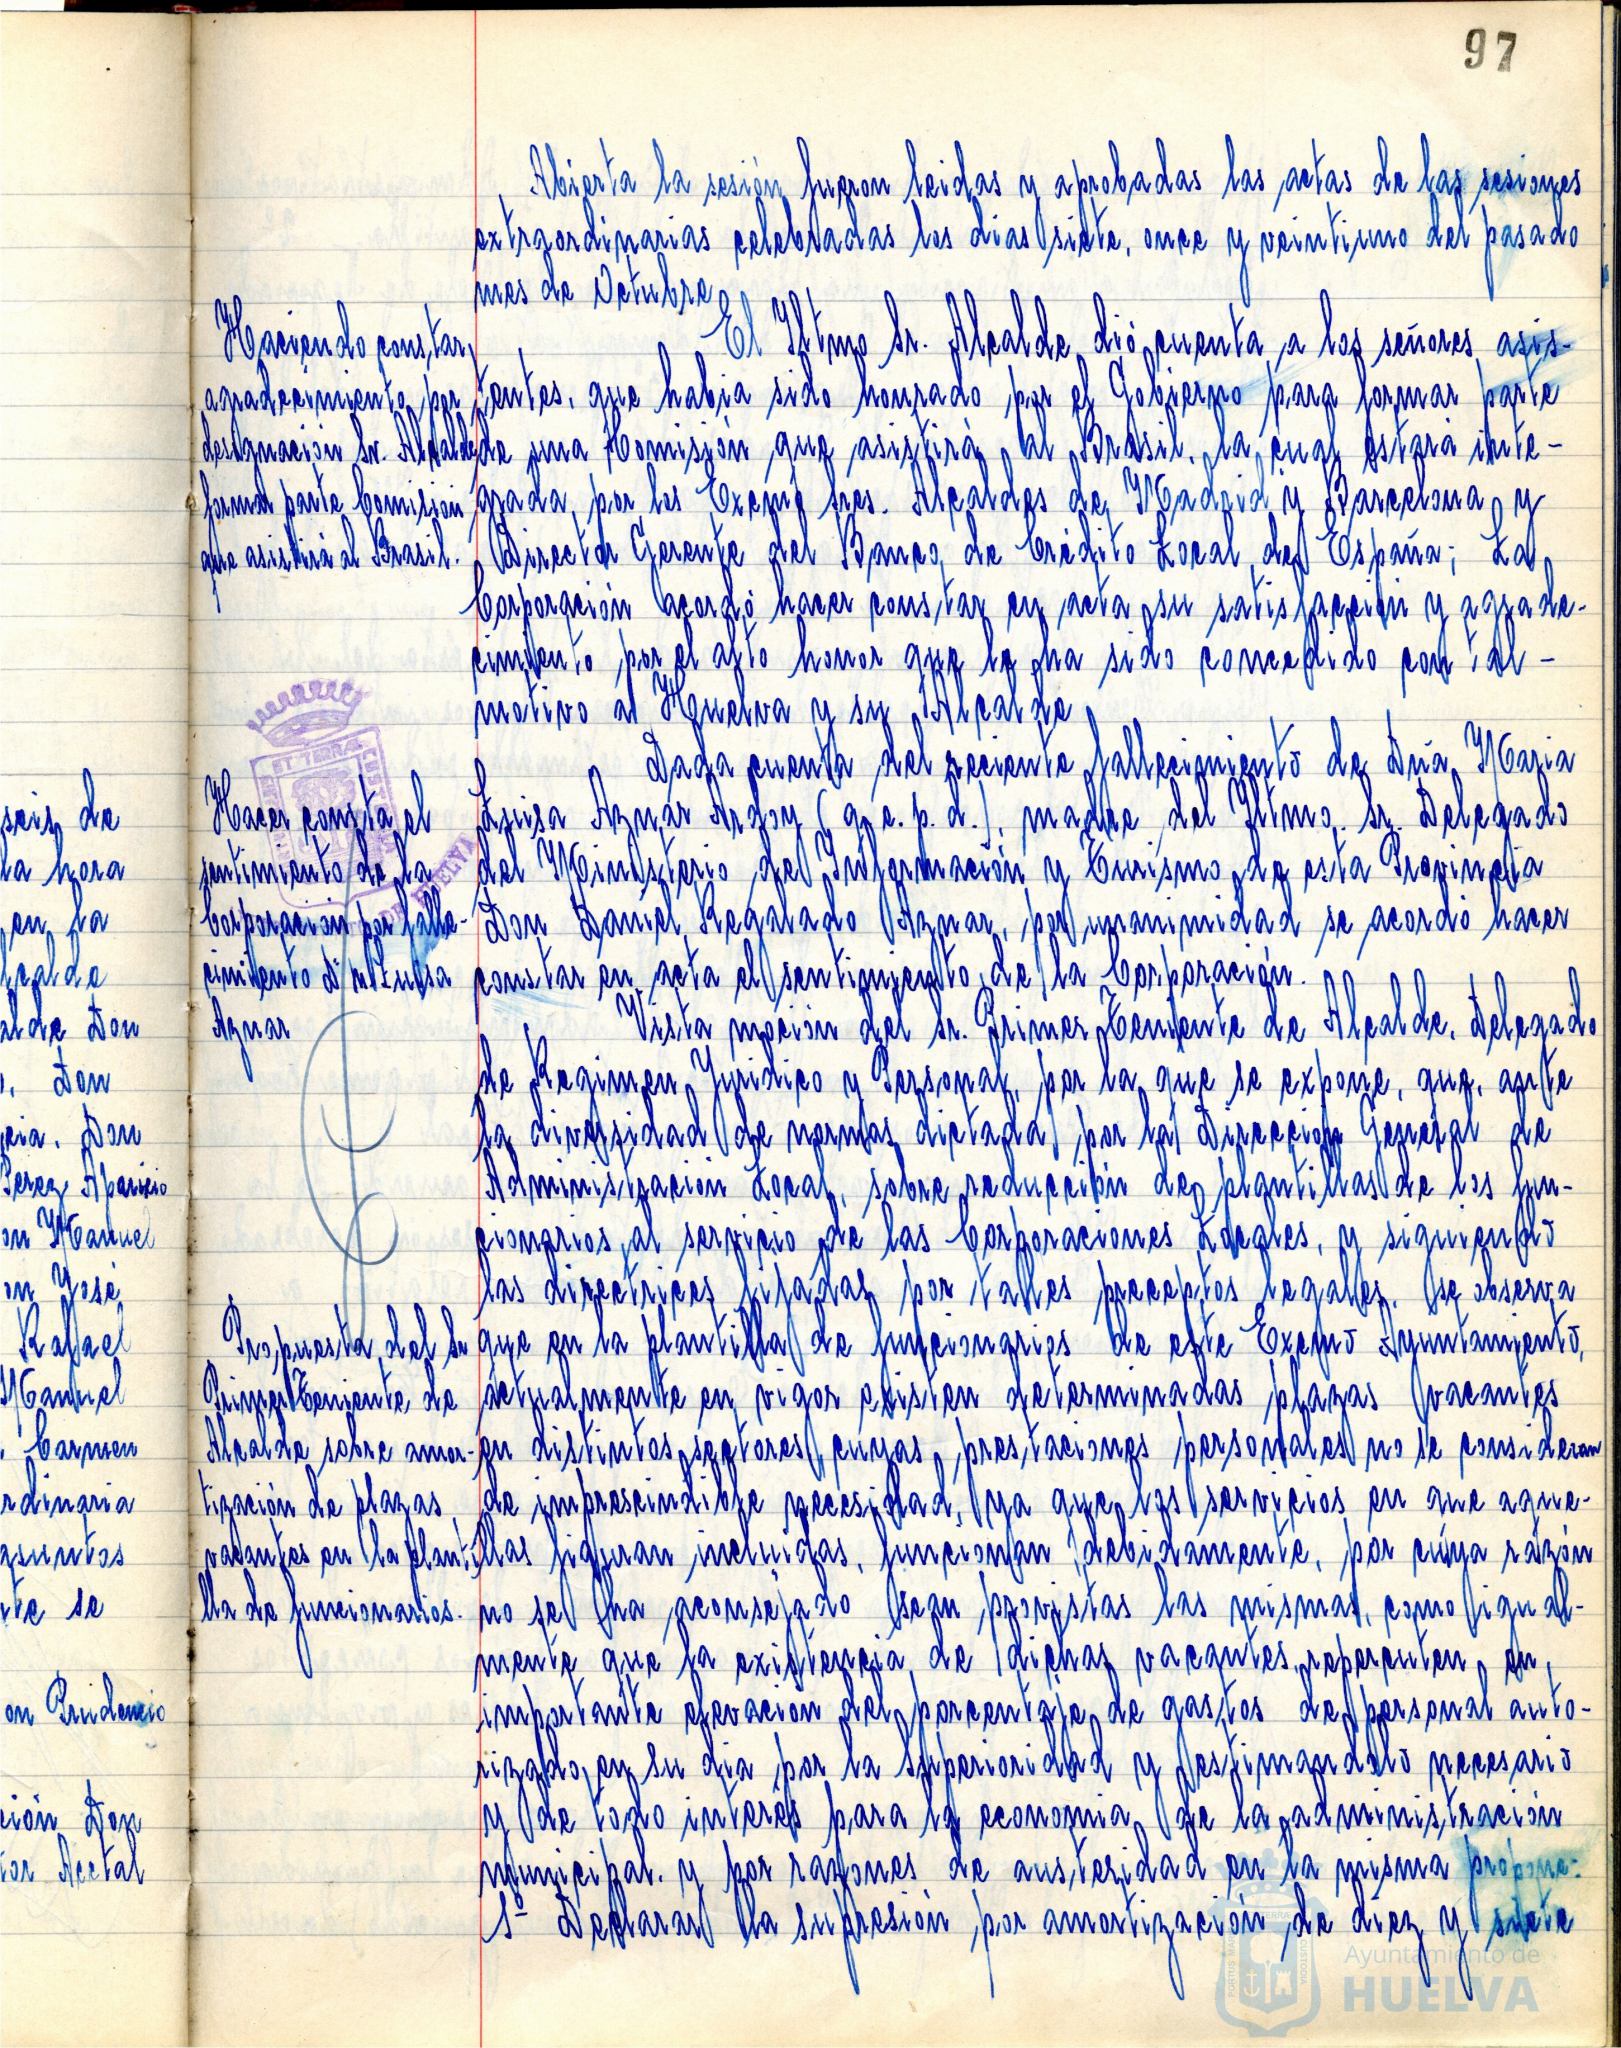 97
Abierta la sesión fueron leidas y aprobadas las actas de las sesiones
extraordinarias celebradas los dias siete, once y veintiuno del pasado
mes de Octubre
El Iltmo Sr. Alcalde dió cuenta a los señores asis-
tentes, que habia sido honrado por el Gobierno para formar parte
de una Comisión que asistirá al Brasil, la cual estará inte-
grada por los Excmo Sres. Alcaldes de Madrid y Barcelona y
Director Gerente del Banco de Crédito Local de España; La
Corporación acordó hacer constar en acta su satisfacción y agrade-
cimiento por el alto honor que le ha sido concedido con tal-
motivo a Huelva y su Alcalde
Dada cuenta del reciente fallecimiento de Dña Maria
Luisa Aznar Ardoy (q. e. p. d.), madre del Iltmo. Sr. Delegado
del Ministerio de Información y Turismo de esta Provincia
Don Daniel Regalado Aznar, por unanimidad se acordó hacer
constar en acta el sentimiento de la Corporación.
Vista moción del Sr. Primer Teniente de Alcalde, Delegado
de Regimen Juridico y Personal, por la que se expone, que, ante
la diversidad de normas dictada por la Dirección General de
Administración Local, sobre reducción de plantillas de los fun-
cionarios al servicio de las Corporaciones Locales, y siguiendo
las directrices fijadas por tales preceptos legales, se observa
que en la plantilla de funcionarios de este Excmo Ayuntamiento,
actualmente en vigor existen determinadas plazas vacantes
en distintos sectores, cuyas prestaciones personales no se consideran
de imprescindible necesidad, ya que los servicios en que aque-
llas figuran incluidas, funcionan debidamente, por cuya razón
no se ha aconsejado sean provistas las mismas, como igual-
mente que la existencia de dichas vacantes repercuten en
importante elevación del porcentaje de gastos de personal auto-
rizado en su dia por la Superioridad y estimandolo necesario
y de todo interés para la economia de la administración
municipal, y por razones de austeridad en la misma propone:
1º Declarar la supresión por amortización de diez y siete
Haciendo constar
agradecimiento por
designación Sr. Alcalde
formar parte Comisión
que asistirá al Brasil.
Hacer consta el
sentimiento de la
Corporación por falle-
cimiento Dª Mª Luisa
Aznar
Propuesta del Sr
Primer Teniente de
Alcalde sobre amor-
tización de plazas
vacantes en la planti
lla de funcionarios.
seis de
la hora
en la
lcalde
alde Don
Don
cia. Don
Perez Aparicio
on Manuel
on José
Rafael
Manuel
Carmen
rdinaria
asuntos
te se
on Prudencio
ción Don
tor Acctal
ET TERRAE CUSTODIA
DE HUELVA
PORTUS MARIS ET TERRAE CUSTODIA
Ayuntamiento de
HUELVA